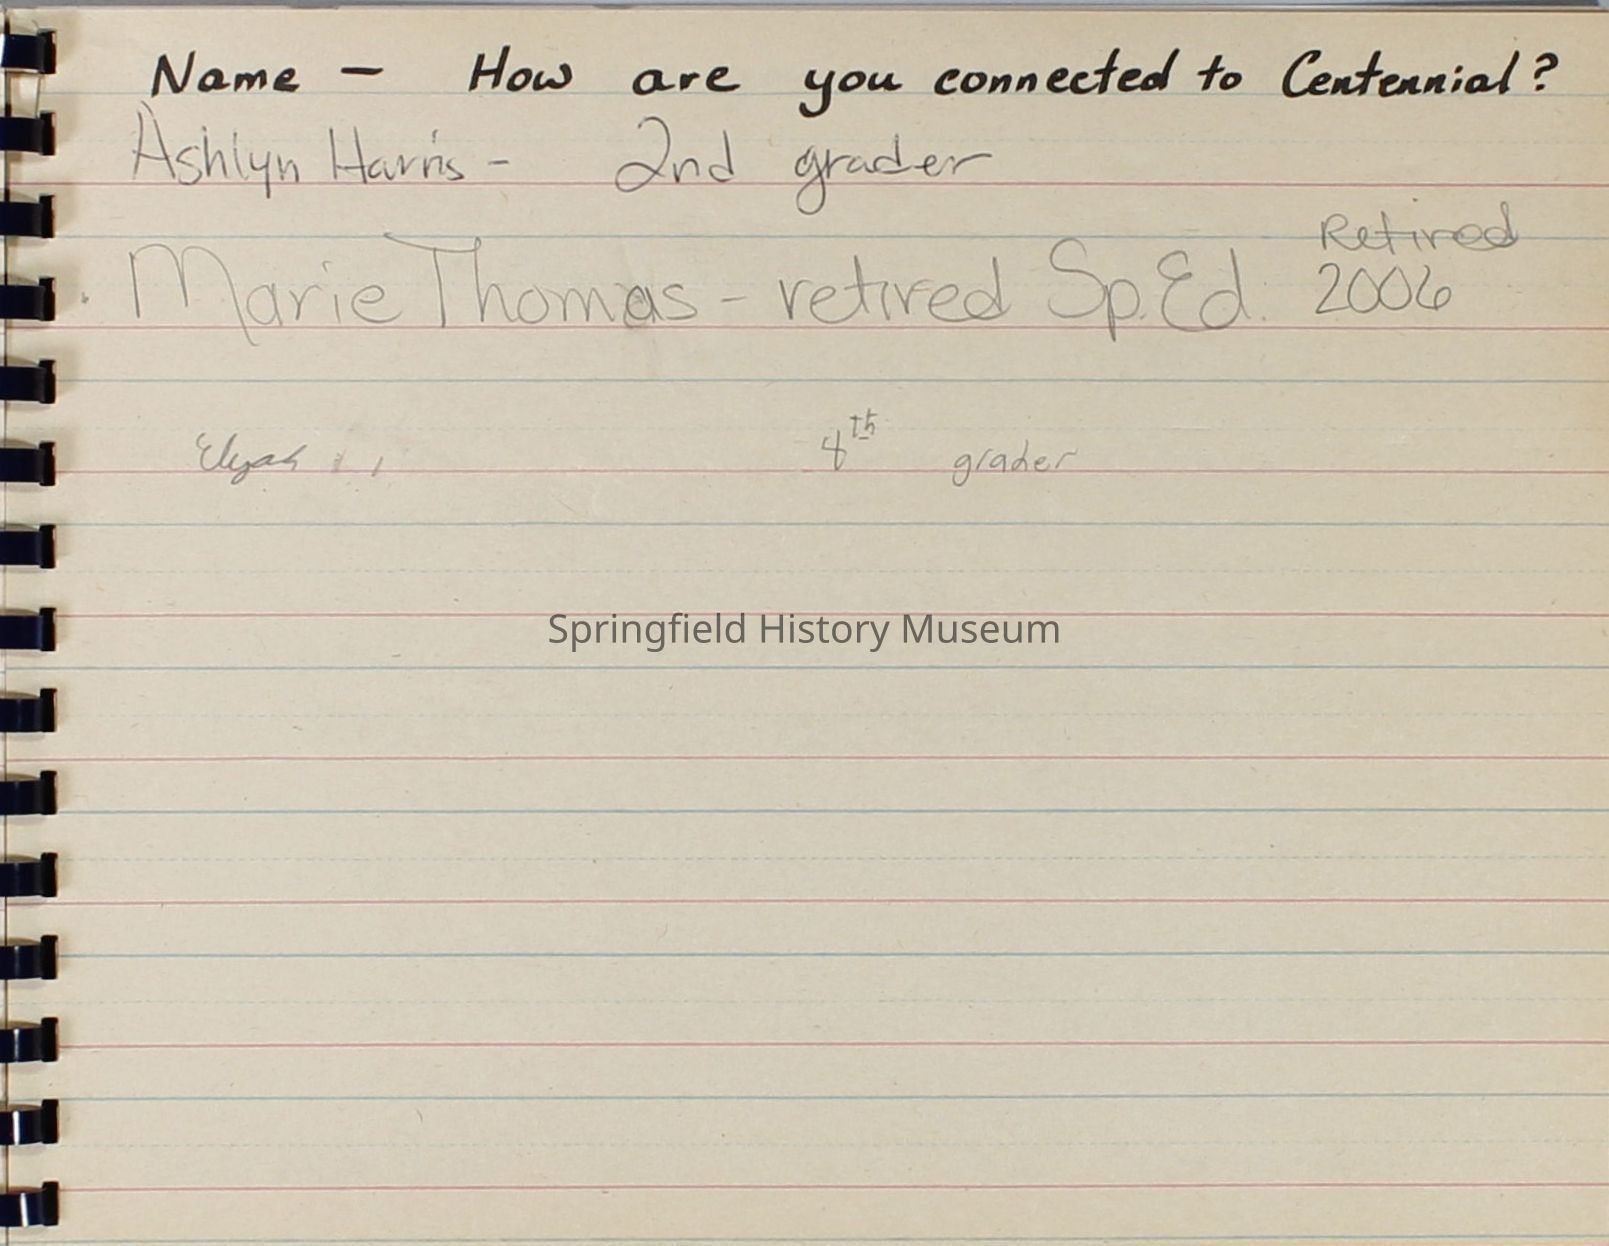 Name - How are you connected to Centennial?
Ashlyn Harris - 2nd grader
Retired
Marie Thomas - retired Sp. Ed. 2006
8th grader
Springfield History Museum